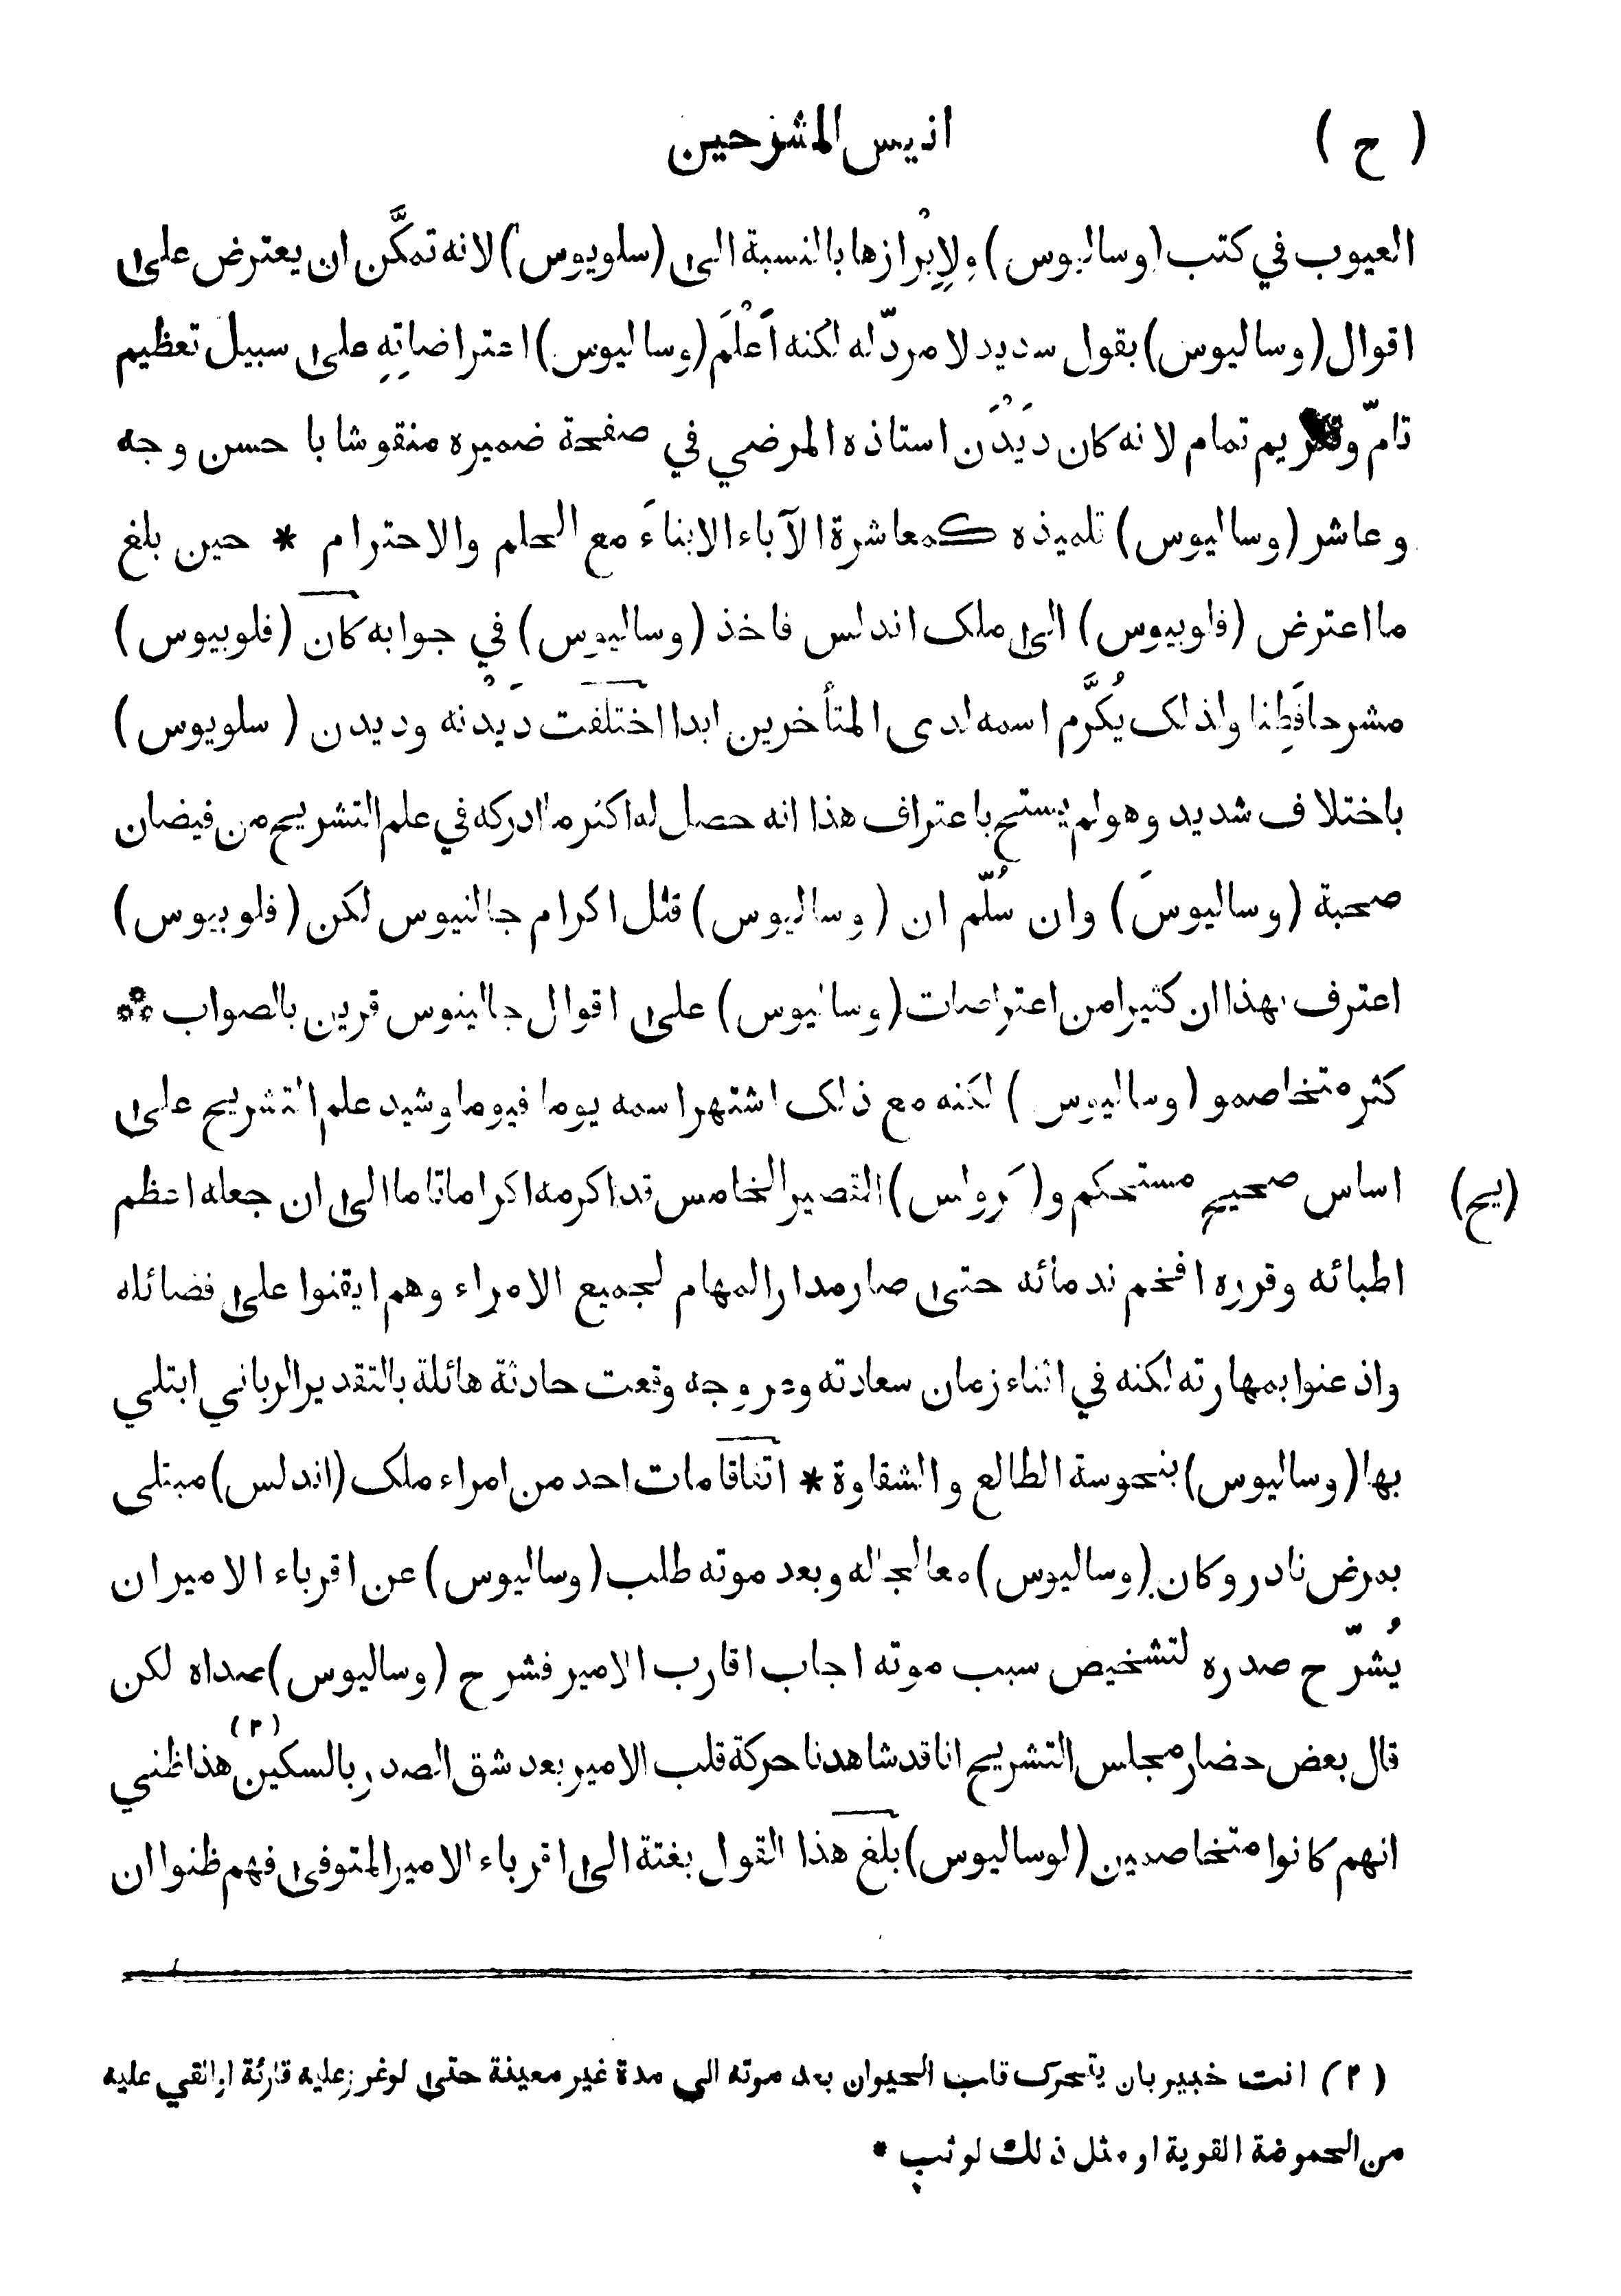 ( ح ) انيس المشرحين
العيوب في كتب (وساليوس) ولإبْرازها بالنسبة الى (سلويوس) لانه تمكَّن ان يعترض على
اقوال (وساليوس) بقول سديد لا مردّ له لكنه أَعْلَمَ (وساليوس) اعتراضاتِهِ على سبيل تعظيم
تامّ يم تمام لانه كان دَيْدَن استاذه المرضي في صفحة ضميره منقوشا با حسن وجه
وعاشر (وساليوس) تلميذه كمعاشرة الآباء الابناءَ مع الحلم والاحترام * حين بلغ
ما اعترض (فلوبيوس) الى ملك اندلس فاخذ (وساليوس) في جوابه كان (فلوبيوس)
مشرحا فَطِنا ولذلك يُكَرَّم اسمه لدى المتأخرين ابدا اختلفت دَيْدنه وديدن (سلويوس)
باختلاف شديد وهو لم يستح باعتراف هذا انه حصل له اكثر ما ادركه في علم التشريح من فيضان
صحبة (وساليوسَ) وان سُلّم ان (وساليوس) قلل اكرام جالنيوس لكن (فلوبيوس)
اعترف بهذا ان كثيرا من اعتراضات (وساليوس) على اقوال جالينوس قرين بالصواب **
كثر متخاصمو (وساليوس) لكنه مع ذلك اشتهر اسمه يوما فيوما وشيد علم التشريح على
اساس صحيح مستحكم و( القصير الخامس قد اكرمه اكراما تاما الى ان جعله اعظم (يح)
اطبائه وقرره افخم ندمائه حتى صار مدار المهام لجميع الامراء وهم ايقنوا على فضائله
واذعنوا بمهارته لكنه في اثناء زمان سعادته وعروجه وقعت حادثة هائلة بالتقدير الرباني ابتلي
بها (وساليوس) بنحوسة الطالع والشقاوة * اتفاقا مات احد من امراء ملك (اندلس) مبتلى
بمرض نادر وكان (وساليوس) معالجا له وبعد موته طلب (وساليوس) عن اقرباء الامير ان
يُشرّح صدره لتشخيص سبب موته اجاب اقارب الامير فشرح (وساليوس) صداه لكن
قال بعض حضار مجلس التشريح انا قد شاهدنا حركة قلب الامير بعد شق الصدر بالسكين (٢) هذا ظني
انهم كانوا متخاصمين (لوساليوس) بلغ هذا القول بغتة الى اقرباء الامير المتوفى فهم ظنوا ان
(٢) انت خبير بان يتحرك قلب الحيوان بعد موته الى مدة غير معينة حتى لو غرز عليه قارئة او القي عليه
من الحموضة القوية او مثل ذلك لوثب *